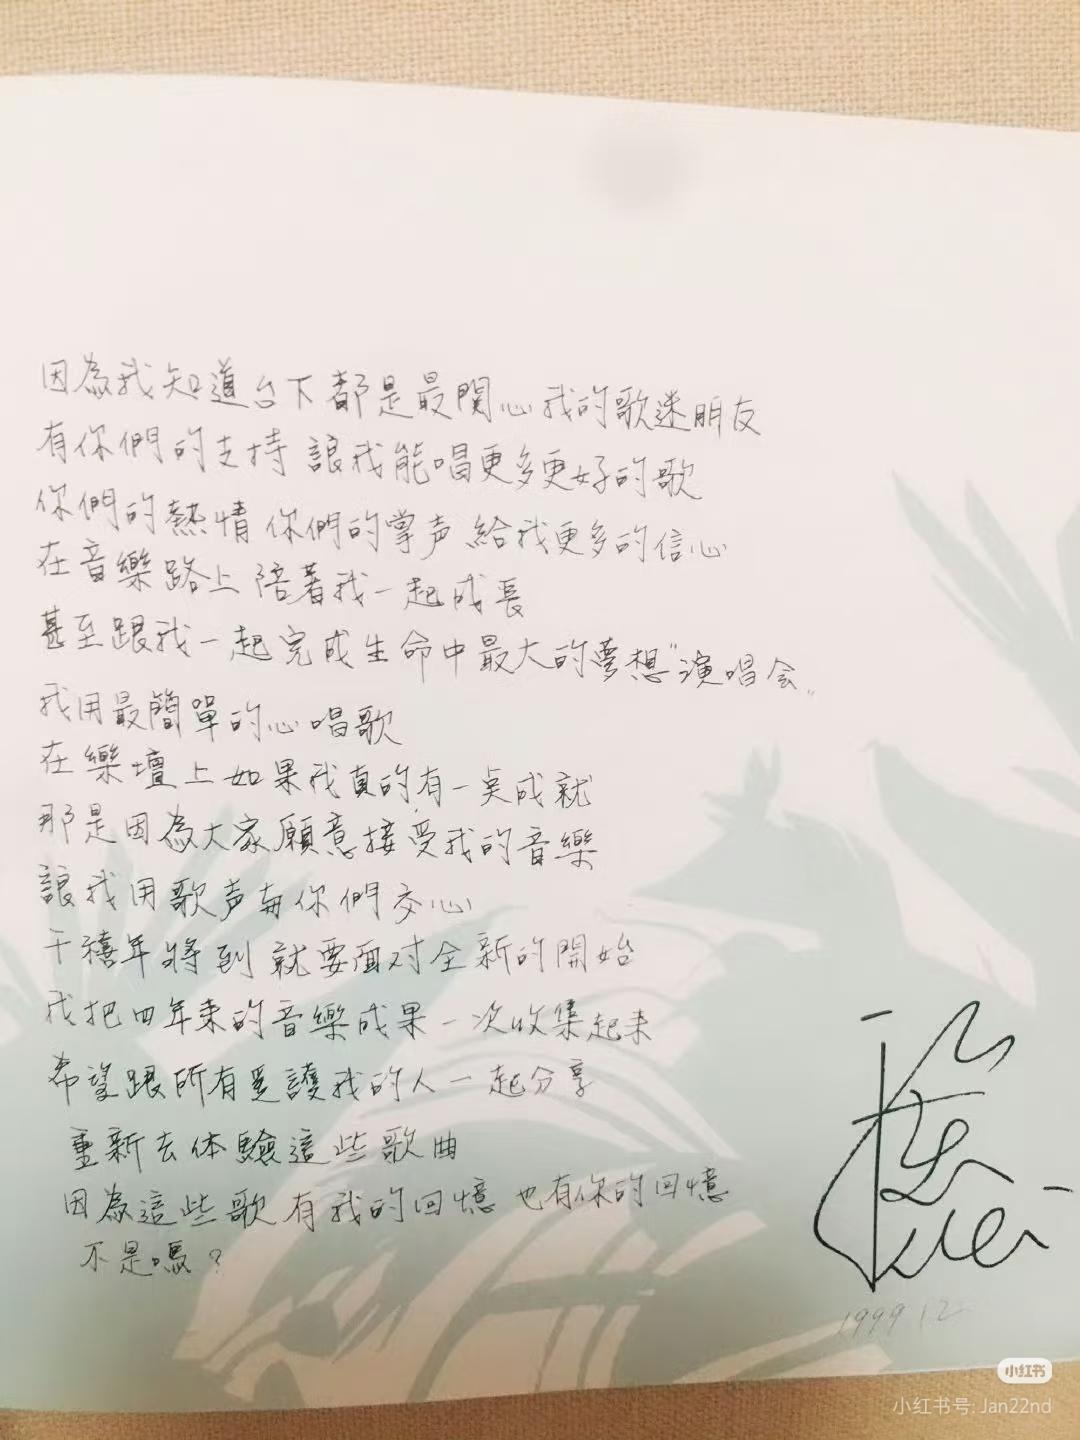 因為我知道台下都是最関心我的歌迷朋友
有你們的支持 讓我能唱更多更好的歌
你們的熱情 你們的掌声 給我更多的信心
在音樂路上 陪著我一起成長
甚至跟我一起完成生命中最大的夢想"演唱会"
我用最簡單的心唱歌
在樂壇上如果我真的有一点成就
那是因為大家願意接受我的音樂
讓我用歌声與你們交心
千禧年將到 就要面对全新的開始
我把四年来的音樂成果一次收集起来
希望跟所有愛護我的人一起分享
重新去体驗這些歌曲
因為這些歌 有我的回憶 也有你的回憶
不是嗎？
1999 12
小红书
小红书号: Jan22nd